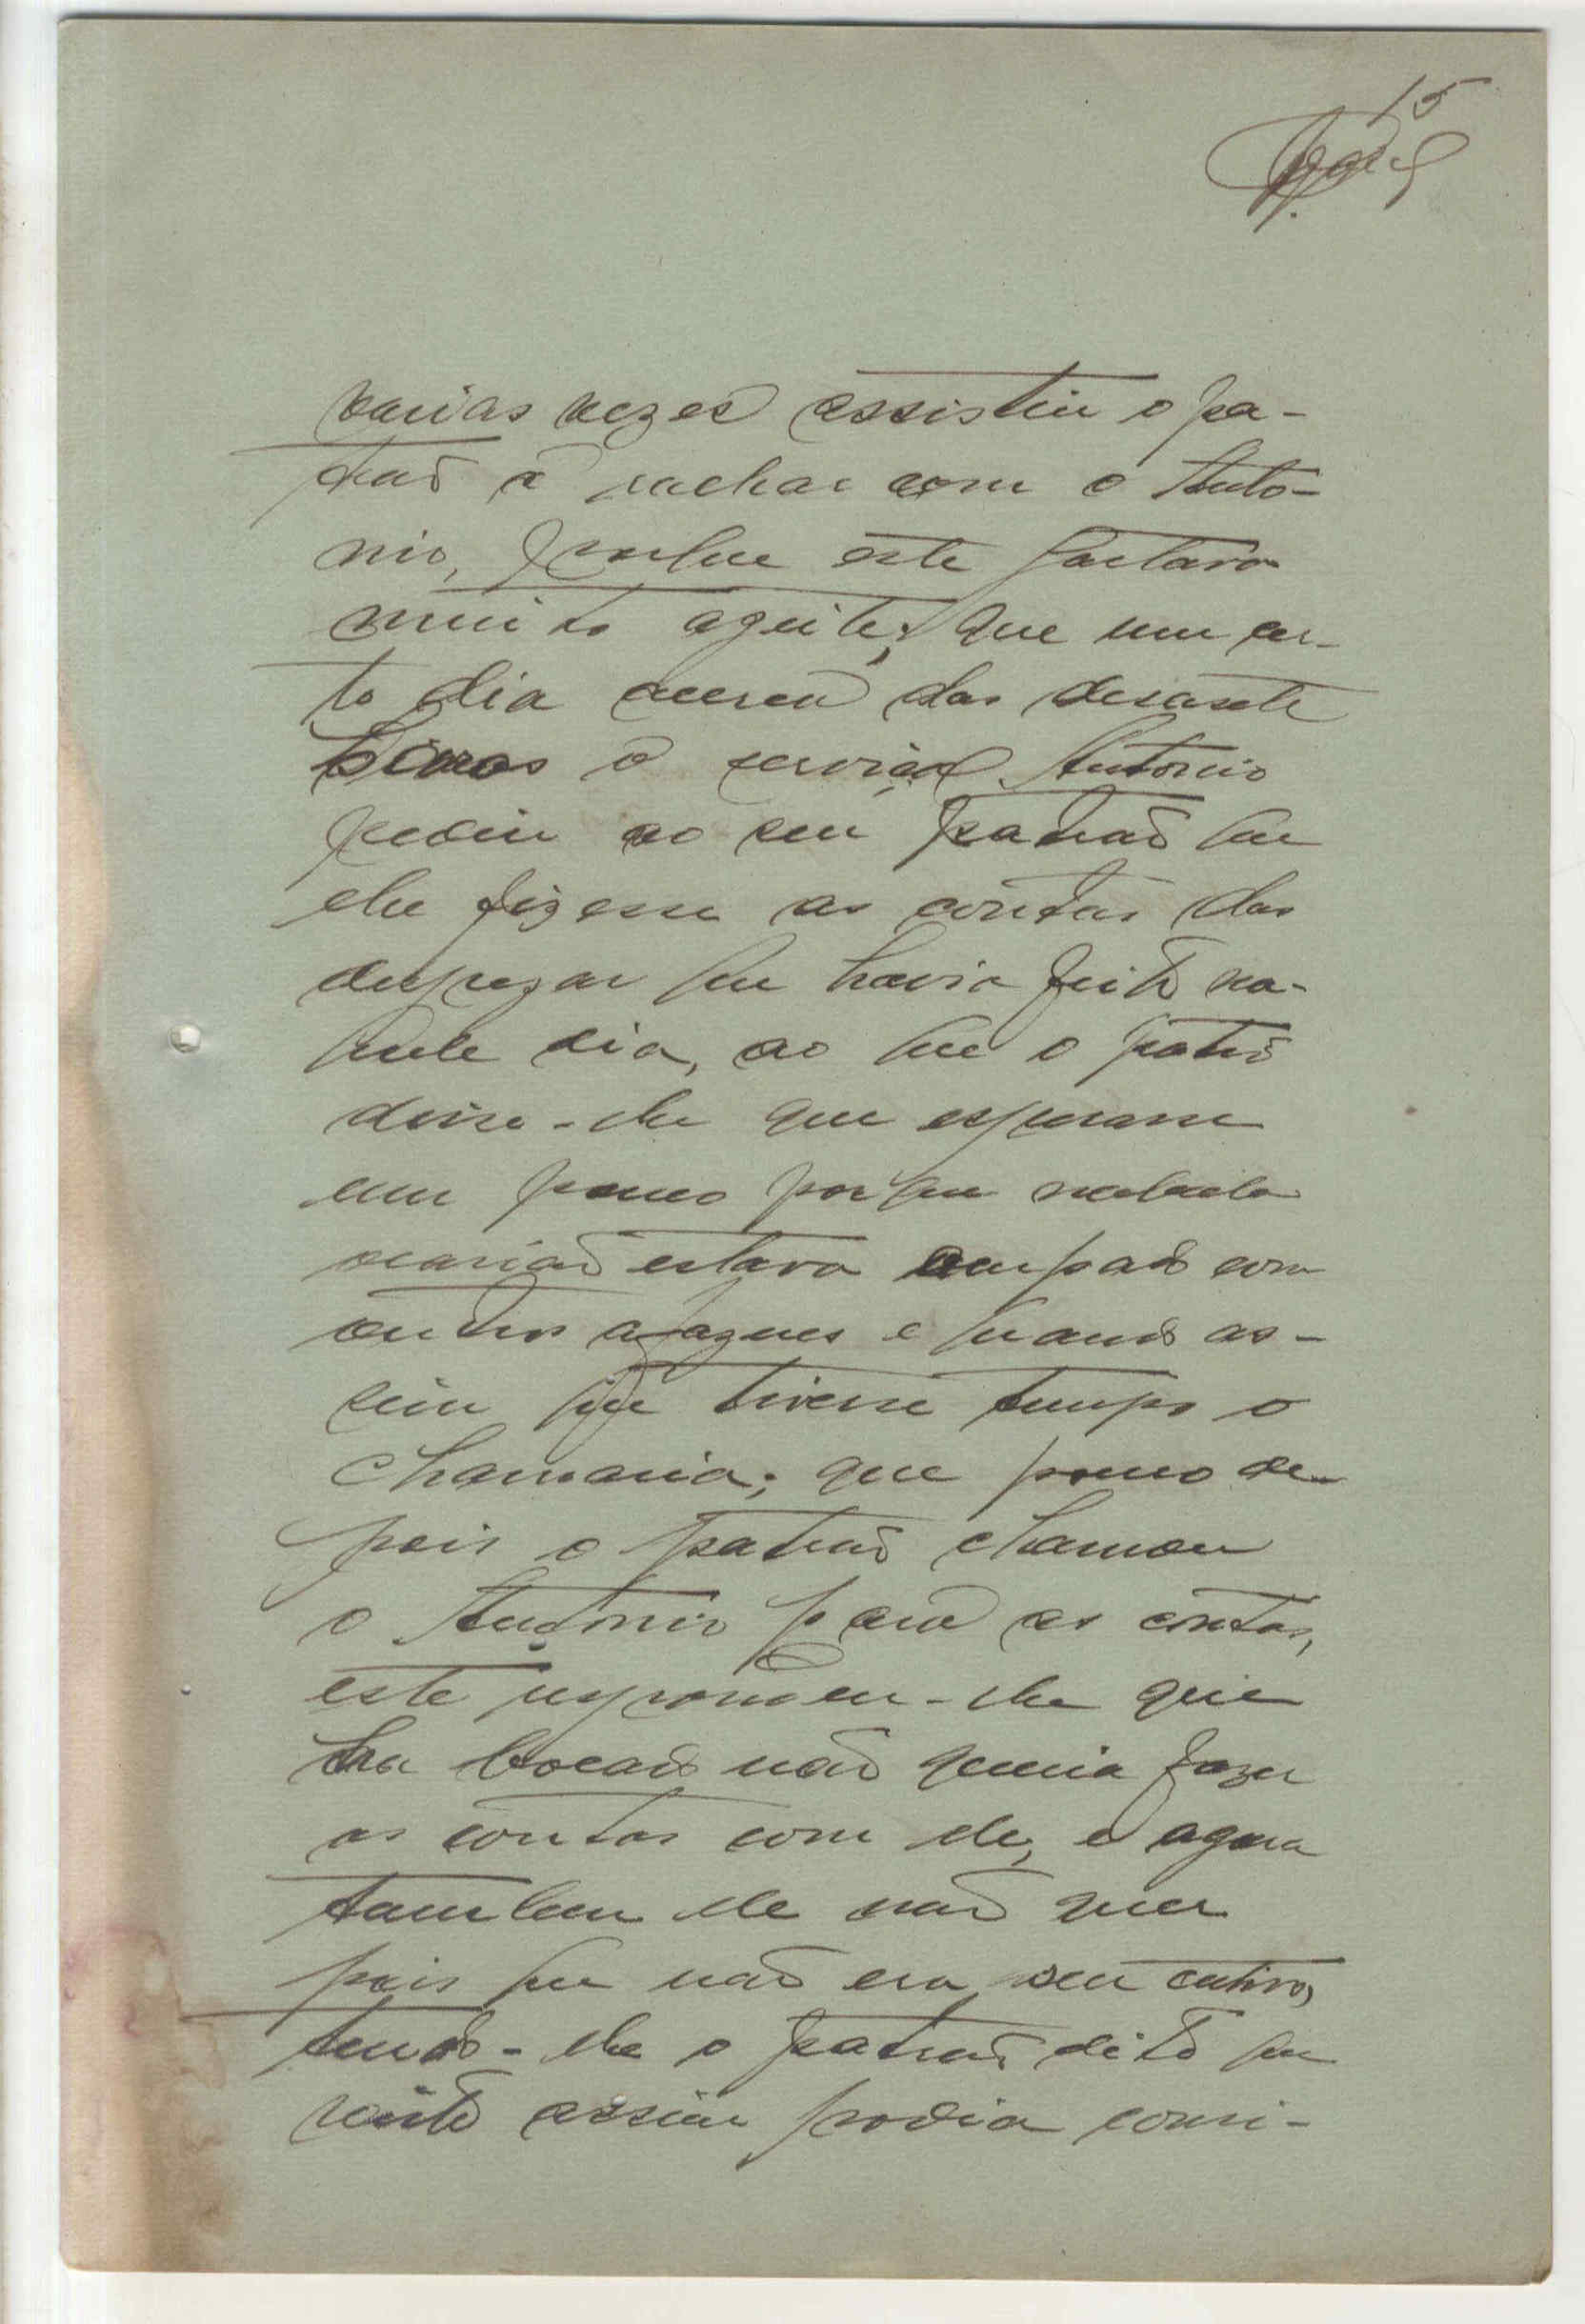 15
varias vezes assistiu o pa-
trão a rachar com o Anto-
nio, porque este gastava
muito azeite; que um cer-
to dia acerca das desasete
horas o serviçal Antonio
pediu ao seu patrão que
lhe fizesse as contas das
despezas que havia feito na-
quele dia, ao que o patrão
disse-lhe que esperasse
um pouco porque naquela
ocasião estava ocupado com
outros afazeres e quando as-
sim que tivesse tempo o
chamaria; que pouco de-
pois o patrão chamou
o Antonio para as contas,
este respondeu-lhe que
ha bocado não queria fazer
as contas com ele, e agora
tambem ele não quer
pois que não era seu cativo,
tendo-lhe o patrão dito que
visto assim podia consi-